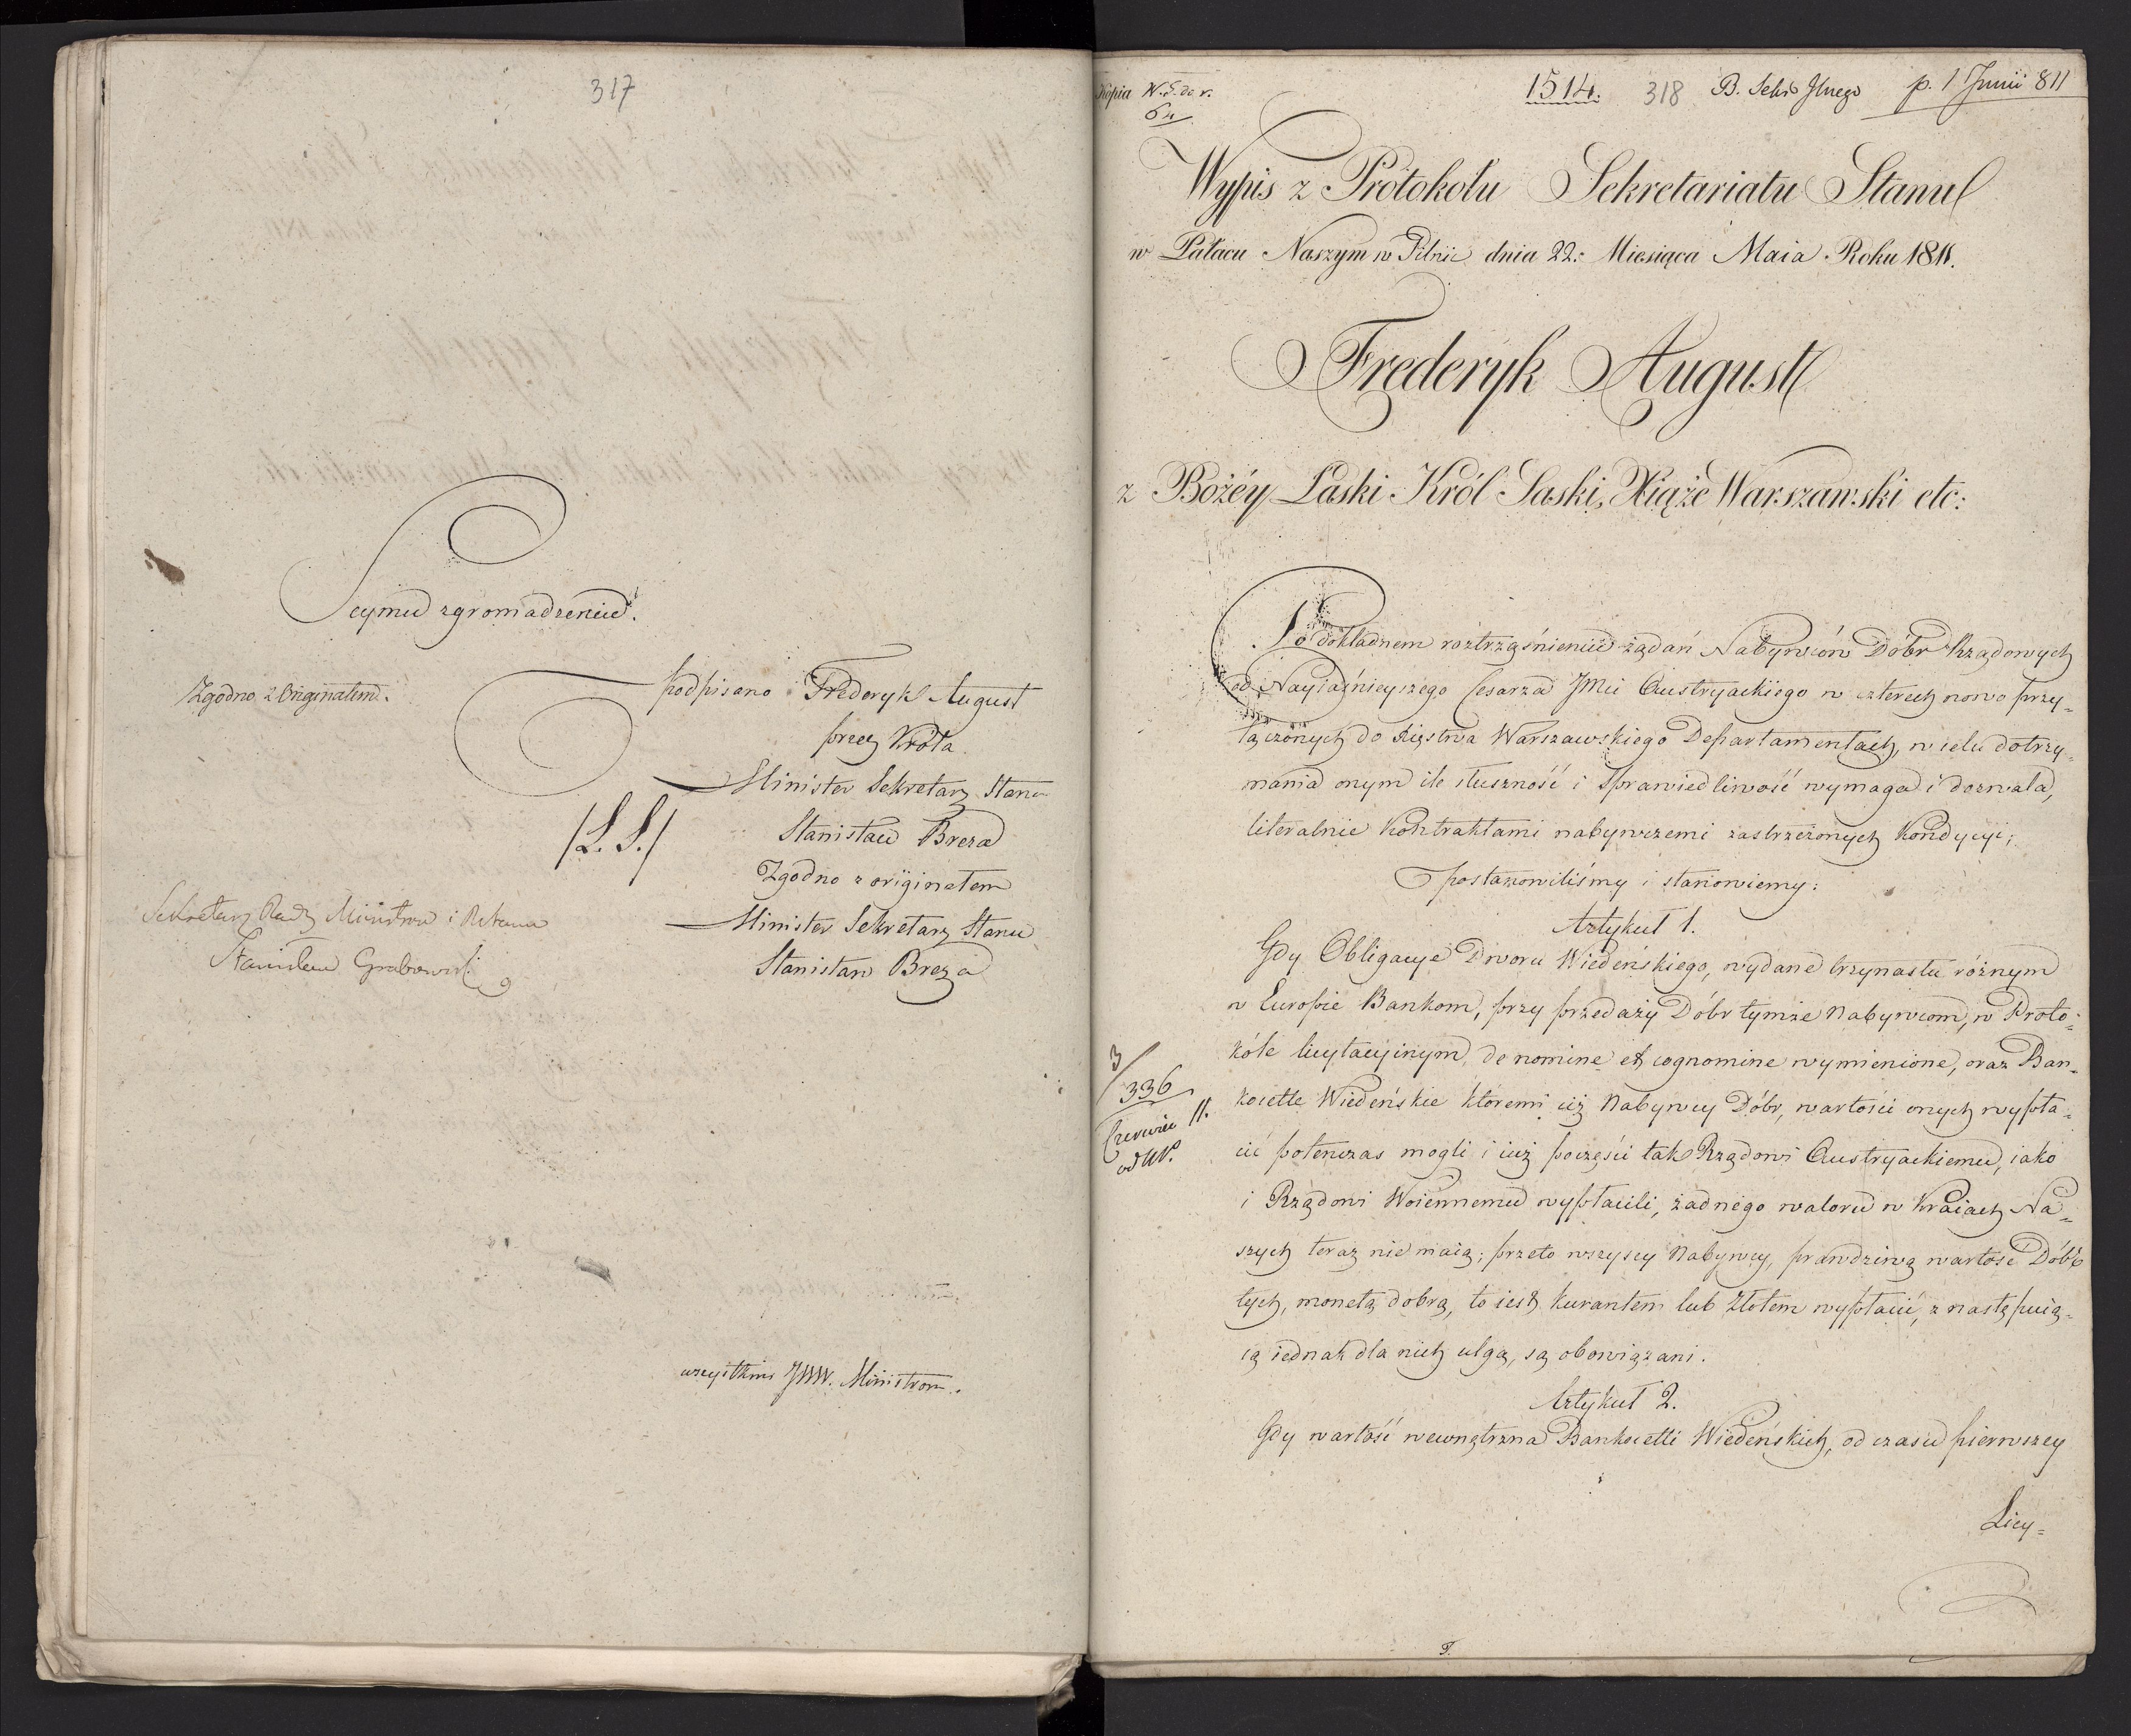 317
Seymu zgromadzeniu.
Zgodno z Originałem.
podpisano Frederyk August
przez Króla
Minister Sekretarz Stanu
/L. S./
Stanisław Breza
Zgodno z originałem
Minister Sekretarz Stanu
Stanisław Breza
Sekretarz Rady Ministrów i
Stanisław Grabowski
wszystkim JWW. Ministrom.
Kopia
1514. 318 p. 1 Junii 811
Wypis z Protokołu Sekretariatu Stanu
w Pałacu Naszym w Pilnic dnia 22. Miesiąca Maia Roku 1811.
Frederyk August
z Bożéy Łaski Król Saski, Xiąże Warszawski etc:
Po dokładnem roztrząśnieniu żądań Nabywców Dóbr Rządowych
od Nayiaśnieyszego Cesarza JMci Austryackiego w czterech nowo przy=
łączonych do Xięstwa Warszawskiego Departamentach, w celu dotrzy=
mania onym ile słuszność i sprawiedliwość wymaga i dozwala,
literalnie kontraktami nabywczemi zastrzeżonych kondycyi;
postanowiliśmy i stanowiemy:
Artykuł 1.
Gdy Obligacye Dworu Wiedeńskiego, wydane trzynastu różnym
w Europie Bankom, przy przedaży Dóbr tymże Nabywcom, w Proto=
kóle licytacyinym de nomine et cognomine wymienione, oraz Ban=
kocetle Wiedeńskie któremi ciż Nabywcy Dóbr, wartości onych wypła=
cić potenczas mogli i iuż poczęści tak Rządowi Austryackiemu, iako
i Rządowi Woiennemu wypłacili, żadnego waloru w Kraiach Na=
szych teraz nie maią; przeto wszyscy Nabywcy, prawdziwą wartość Dóbr
tych, monetą dobrą, to iest kurantem lub złotem wypłacić, z następuią=
cą iednak dla nich ulgą, są obowiązani.
3/336
Czerwiec 11.
Artykuł 2.
Gdy wartość wewnętrzna Bankocetli Wiedeńskich, od czasu pierwszey
Licy=